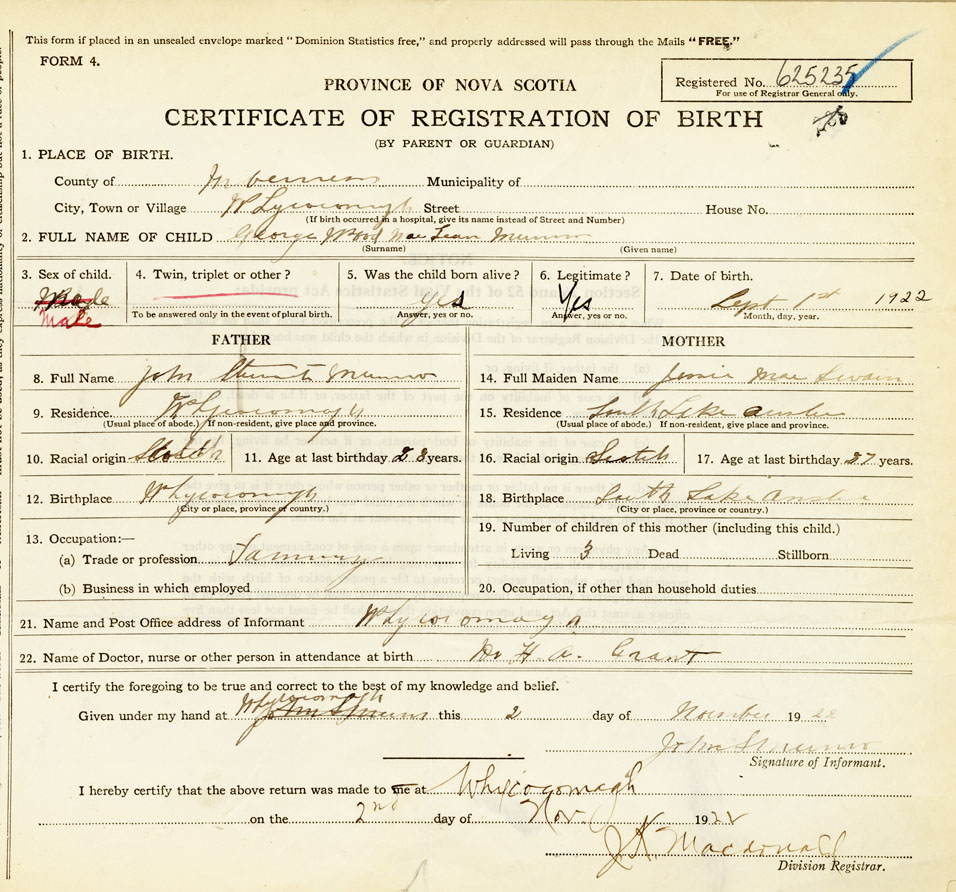 This form if placed in an unsealed envelope marked "Dominion Statistics free," and properly addressed will pass through the Mails "FREE."
FORM 4.
Registered No. 625235
For use of Registrar General only.
PROVINCE OF NOVA SCOTIA
CERTIFICATE OF REGISTRATION OF BIRTH
(BY PARENT OR GUARDIAN)
1. PLACE OF BIRTH.
County of Inverness Municipality of
City, Town or Village Street House No.
(If birth occurred in a hospital, give its name instead of Street and Number)
2. FULL NAME OF CHILD George Wood Mac Lean Munro
(Surname) (Given name)
3. Sex of child. 4. Twin, triplet or other? 5. Was the child born alive? 6. Legitimate? 7. Date of birth.
Male yes Yes Sept 1st 1922
Male To be answered only in the event of plural birth. Answer, yes or no. Answer, yes or no. Month, day, year.
FATHER MOTHER
8. Full Name John Stewart Munro 14. Full Maiden Name Jessie Mae Swain
9. Residence. 15. Residence South Lake Ainslie
(Usual place of abode.) If non-resident, give place and province. (Usual place of abode.) If non-resident, give place and province.
10. Racial origin Scotch 11. Age at last birthday years. 16. Racial origin Scotch 17. Age at last birthday 27 years.
12. Birthplace Whycocomagh 18. Birthplace South Lake Ainslie
(City or place, province or country.) (City or place, province or country.)
13. Occupation:— 19. Number of children of this mother (including this child.)
(a) Trade or profession Living 3 Dead Stillborn
(b) Business in which employed 20. Occupation, if other than household duties
21. Name and Post Office address of Informant Whycocomagh
22. Name of Doctor, nurse or other person in attendance at birth Dr H A. Grant
I certify the foregoing to be true and correct to the best of my knowledge and belief.
Whycocomagh
Given under my hand at John S Munro this 2 day of November 1922
John S Munro
Signature of Informant.
I hereby certify that the above return was made to me at Whycocomagh
on the 2nd day of Nov. 1922
J K Macdonald
Division Registrar.